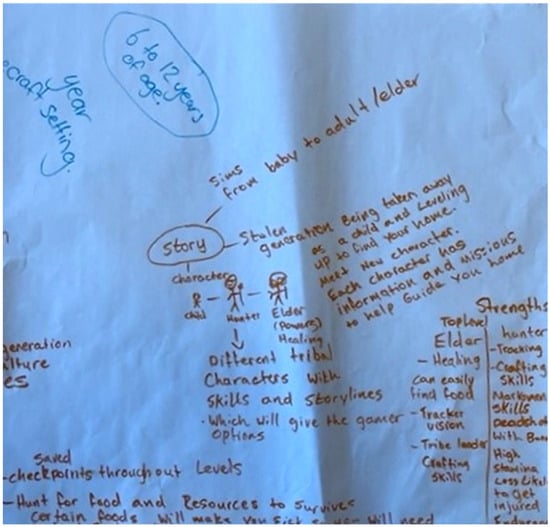 6 to 12 years
of age.
year
craft setting.
Sims
from baby to adult/elder
Story
Stolen
generation Being taken away
as a child and Leveling
up to find your home.
Meet New character.
Each character has
information and missions
to help Guide you home
character
child
Hunter
Elder
(powers)
Healing
Different tribal
Characters with
Skills and Storylines
- Which will give the gamer
options
generation
es
Saved
-checkpoints throughout Levels
-Hunt for food and Resources to Survives
Certain foods Will make you Sick
will need
Strengths
Top Level
Elder
- Healing
can easily
find food
- Tracker
vision
- Tribe leader
Crafting
Skills
hunter
-Tracking
-Crafting
skills
skills
With
High
Stamina
Less Likely
to get
injured